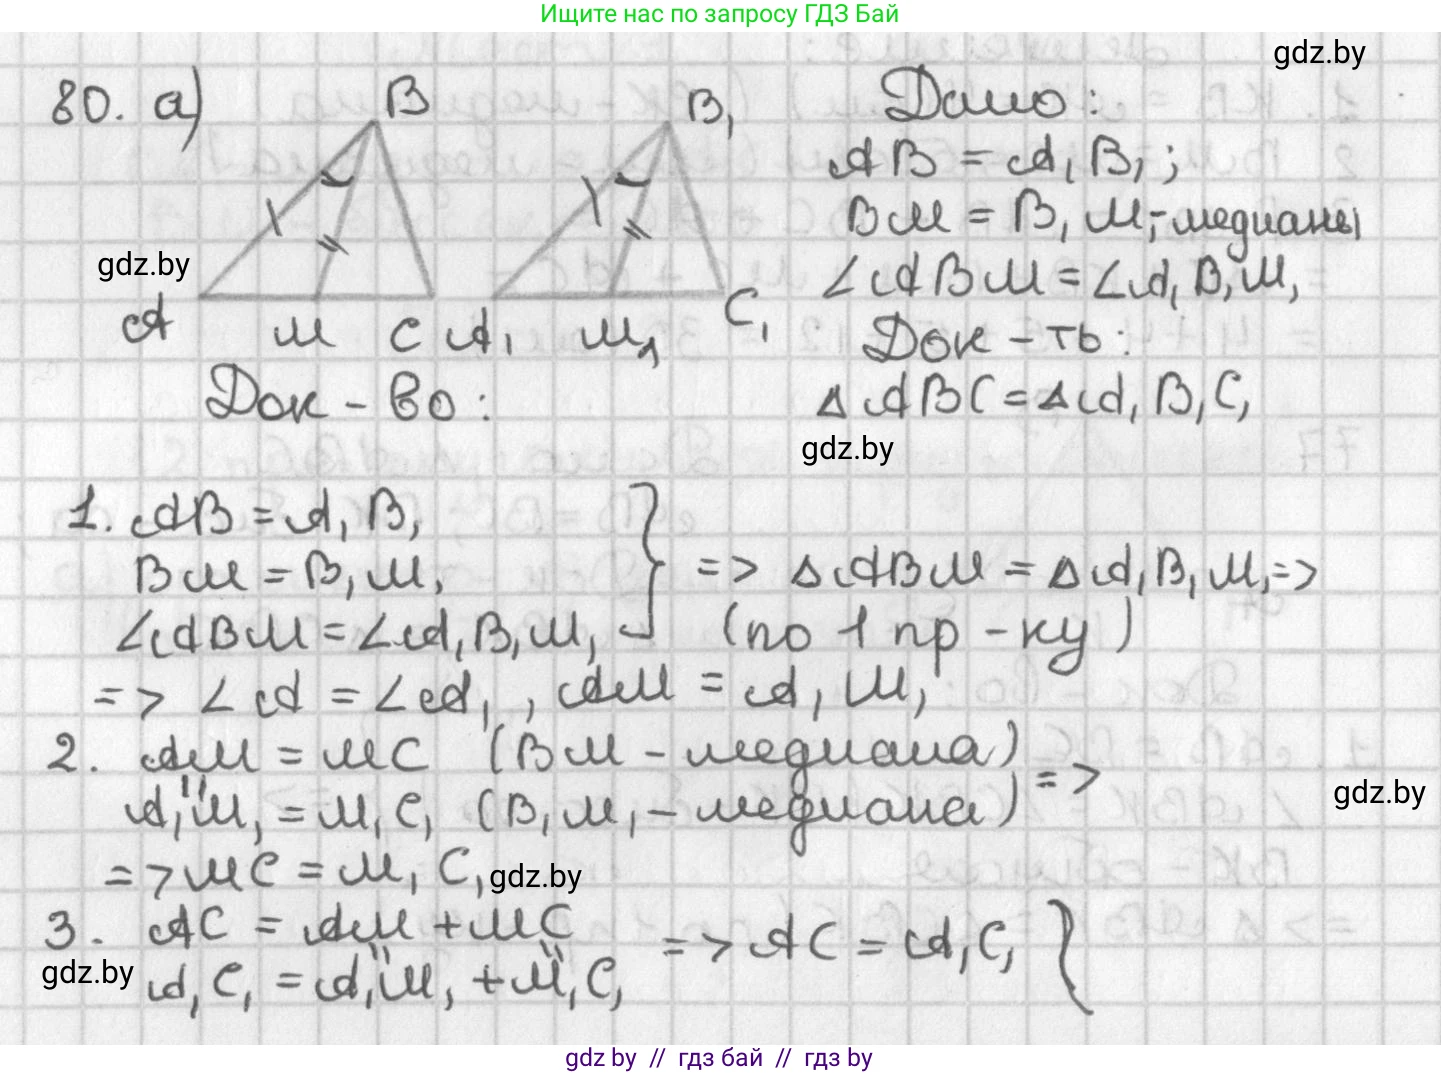 Ищите нас по запросу ГДЗ Бай
gdz.by
80. а)
B
B₁
Дано:
AB = A₁B₁;
BM = B₁M₁-медианы
∠ABM = ∠A₁B₁M₁
gdz.by
A M C A₁ M₁ C₁
Док-ть:
Док-во:
△ABC = △A₁B₁C₁
gdz.by
1. AB = A₁B₁
BM = B₁M₁
∠ABM = ∠A₁B₁M₁
} => △ABM = △A₁B₁M₁ =>
(по 1 пр-ку)
=> ∠A = ∠A₁, AM = A₁M₁
2. AM = MC (BM - медиана)
A₁M₁ = M₁C₁ (B₁M₁ - медиана) =>
gdz.by
=> MC = M₁C₁
gdz.by
3. AC = AM + MC
A₁C₁ = A₁M₁ + M₁C₁
=> AC = A₁C₁ }
gdz.by
gdz by // гдз бай // гдз by